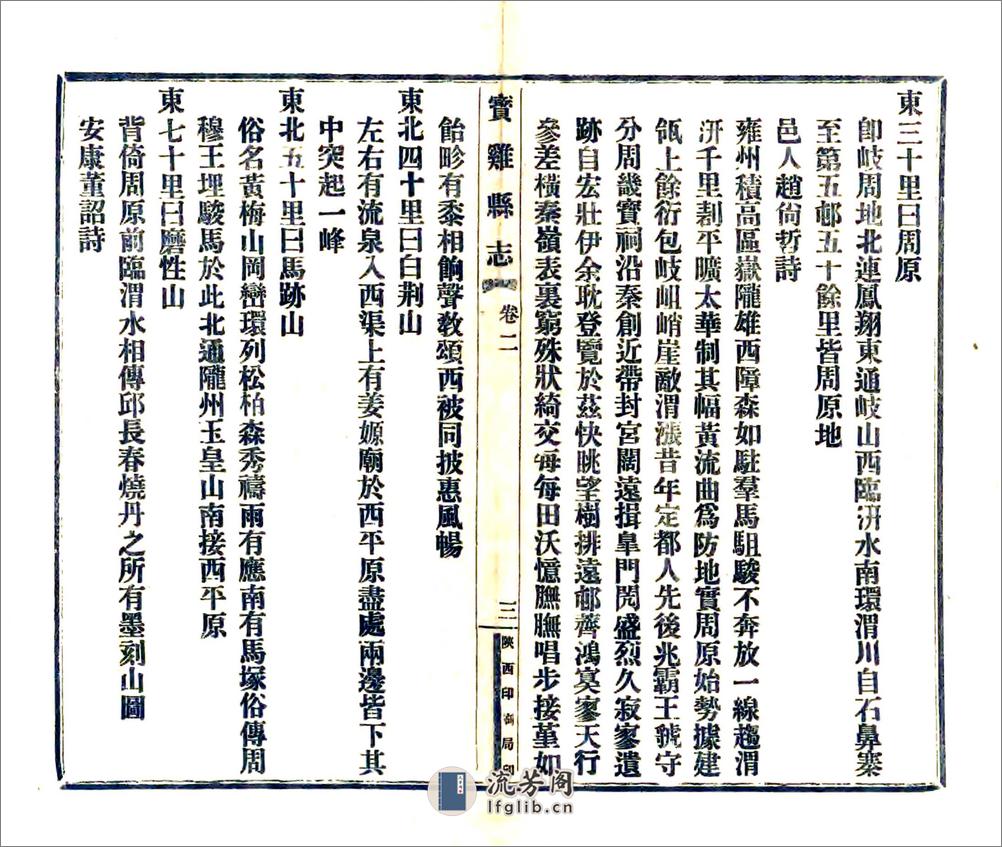 東三十里曰周原
卽岐周地北連鳳翔東通岐山西臨汧水南環渭川自石鼻寨
至第五邨五十餘里皆周原地
邑人趙尙哲詩
雍州積高區嶽隴雄西障森如駐羣馬駔駿不奔放一線趨渭
汧千里剗平曠太華制其幅黃流曲爲防地實周原始勢據建
瓴上餘衍包岐岨峭崖敵渭漲昔年定都人先後兆霸王虢守
分周畿寶祠沿秦創近帶封宮闊遠揖臯門閌盛烈久寂寥遺
跡自宏壯伊余耽登覽於茲快眺望樹排遠邨薺鴻寞寥天行
參差橫秦嶺表裏窮殊狀綺交每每田沃憶膴膴唱步接菫如
寶雞縣志
卷二
三
陝西印刷局印
飴畛有黍相餉聲敎頌西被同披惠風暢
東北四十里曰白荆山
左右有流泉入西渠上有姜嫄廟於西平原盡處兩邊皆下其
中突起一峰
東北五十里曰馬跡山
俗名黃梅山岡巒環列松柏森秀禱雨有應南有馬塚俗傳周
穆王埋駿馬於此北通隴州玉皇山南接西平原
東七十里曰磨性山
背倚周原前臨渭水相傳邱長春燒丹之所有墨刻山圖
安康董詔詩
流芳阁
lfglib.cn